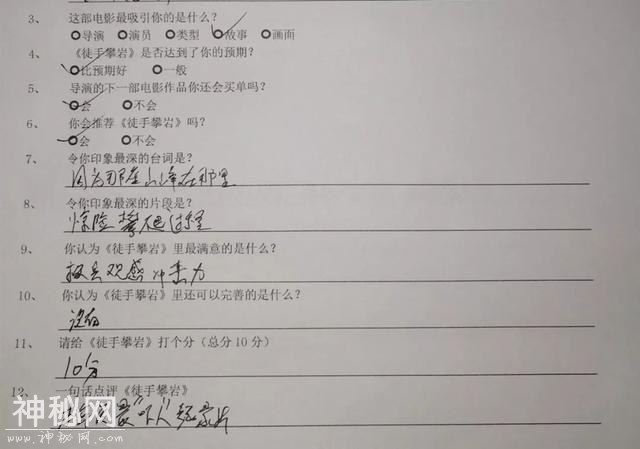 3、 这部电影最吸引你的是什么？
导演 演员 类型 故事 画面
4、 《徒手攀岩》是否达到了你的预期？
比预期好 一般
5、 导演的下一部电影作品你还会买单吗？
会 不会
6、 你会推荐《徒手攀岩》吗？
会 不会
7、 令你印象最深的台词是？
因为那座山峰在那里
8、 令你印象最深的片段是？
惊险攀爬过程
9、 你认为《徒手攀岩》里最满意的是什么？
极具观感冲击力
10、 你认为《徒手攀岩》里还可以完善的是什么？
没有
11、 请给《徒手攀岩》打个分（总分 10 分）
10分
12、 一句话点评《徒手攀岩》
最"吓人"纪录片
神秘网
www.神秘网.com